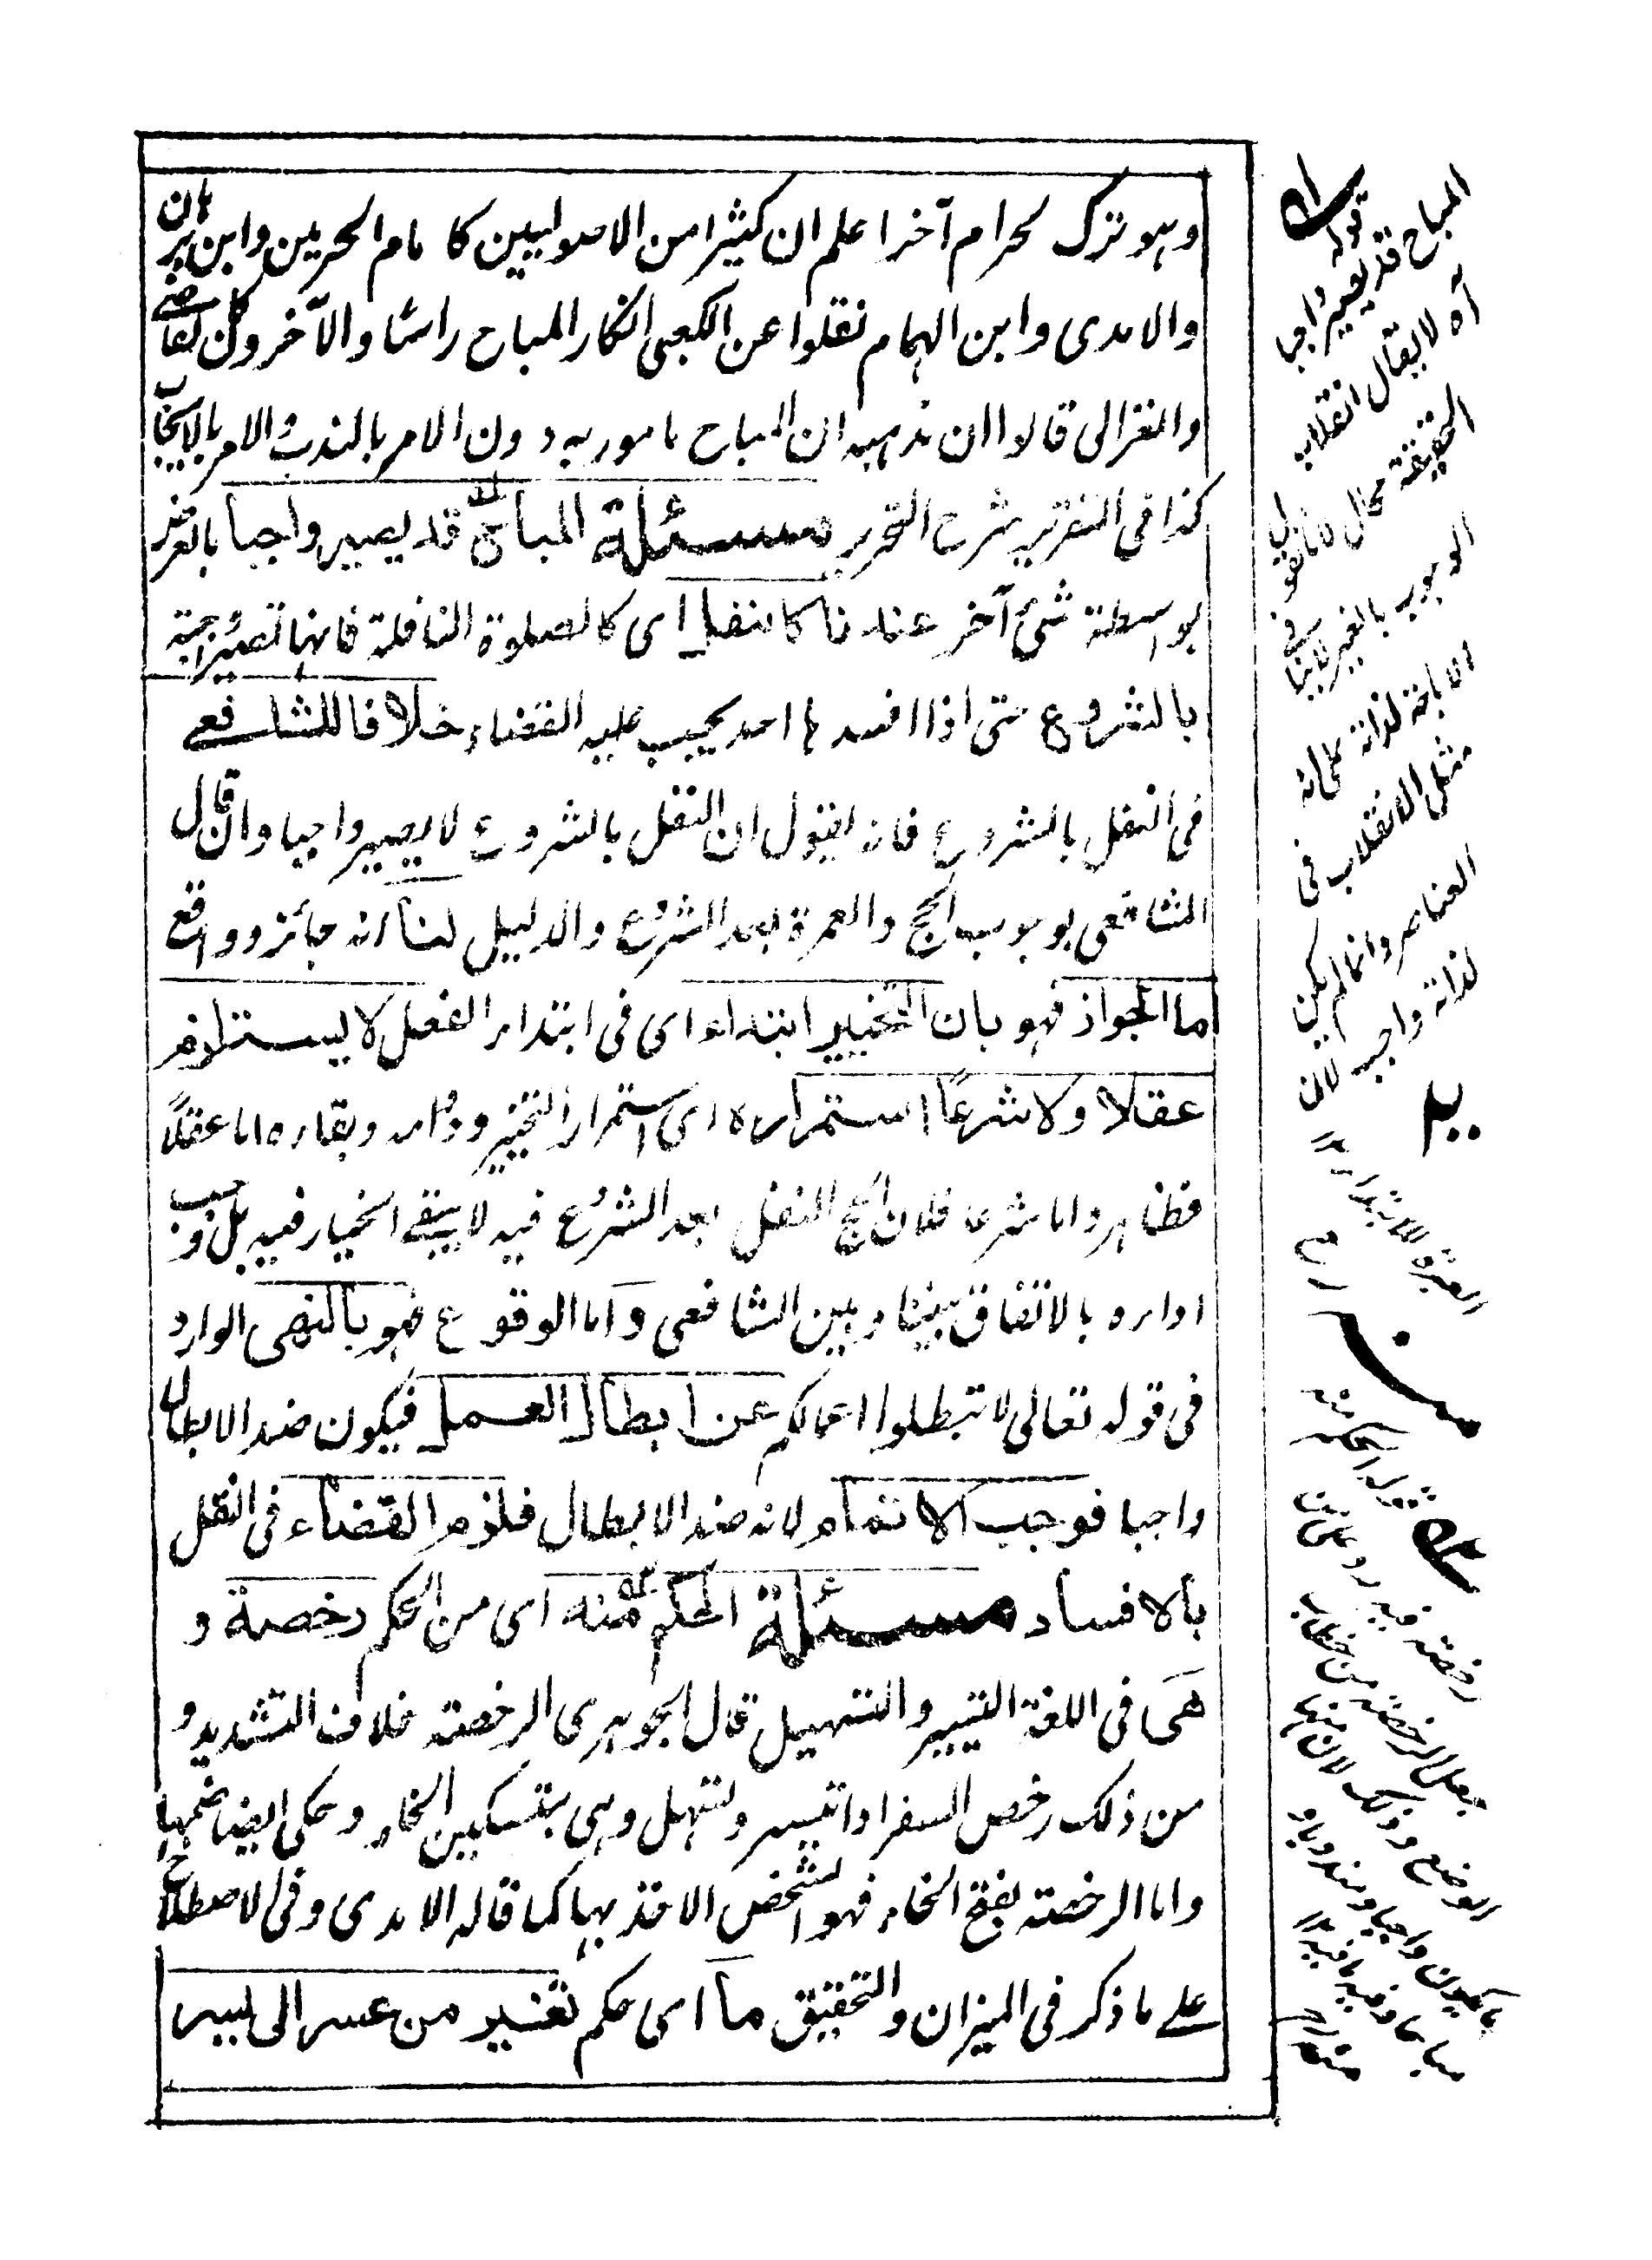 وهو ترك لحرام آخر اعلم ان كثيرا من الاصوليين كامام الحرمين وابن برهان
والامدى وابن الهمام نقلوا عن الكعبى انكار المباح راسًا والآخرون كالقاضے
والغزالى قالوا ان مذهبه ان المباح مامور به دون الامر بالندب والامر بالايجاب
كذا فى التقرير شرح التحرير مسئلة المباح قد يصير واجبا بالغير
بواسطة شئ آخر عندنا كالنفل اى كالصلوة النافلة فانها تصير واجبة
بالشروع حتى اذا افسدها احد يجب عليه القضاء خلافا للشافعے
فى النفل بالشروع فانه يقول ان النفل بالشروع لا يصير واجبا وان قال
الشافعى بوجوب الحج والعمرة بعد الشروع والدليل لنا انه جائز وواقع
اما الجواز فهو بان التخيير ابتداء اى فى ابتداء الفعل لا يستلزم
عقلا ولا شرعًا استمراره اى استمرار التخيير ودوامه وبقاءه اما عقلاً
فظاهر واما شرعا فلان الحج النفل بعد الشروع فيه لا يبقے الخيار فيه بل وجب
اداءه بالاتفاق بيننا وبين الشافعى واما الوقوع فهو بالنهى الوارد
فى قوله تعالى لا تبطلوا اعمالكم عن ابطال العمل فيكون ضد الابطال
واجبا فوجب الاتمام لانه ضد الابطال فلزم القضاء فى النفل
بالافساد مسئلة الحكم منه اى من الحكم رخصة و
هى فى اللغة التيسير والتسهيل قال الجوهرى الرخصة خلاف التشديد و
من ذلك رخص السفر اذا تيسر وتسهل وهى بتسكين الخاء وحكى ايضا ضمها
واما الرخصة بفتح الخاء فهو الشخص الاخذ بها كما قاله الامدى وفى الاصطلاح
علے ما ذكر فى الميزان والتحقيق ما اى حكم تغير من عسر الى يسير
قوله
المباح قد يصير واجبا
آه لا يقال انقلاب
الحقيقة محال لانا نقول
الوجوب بالغير لا ينافى
الاباحة لذاته على انه
مثل الانقلاب فى
العناصر وانما لم يكن
لذاته واجب لان
العبرة للابتداء ١٢